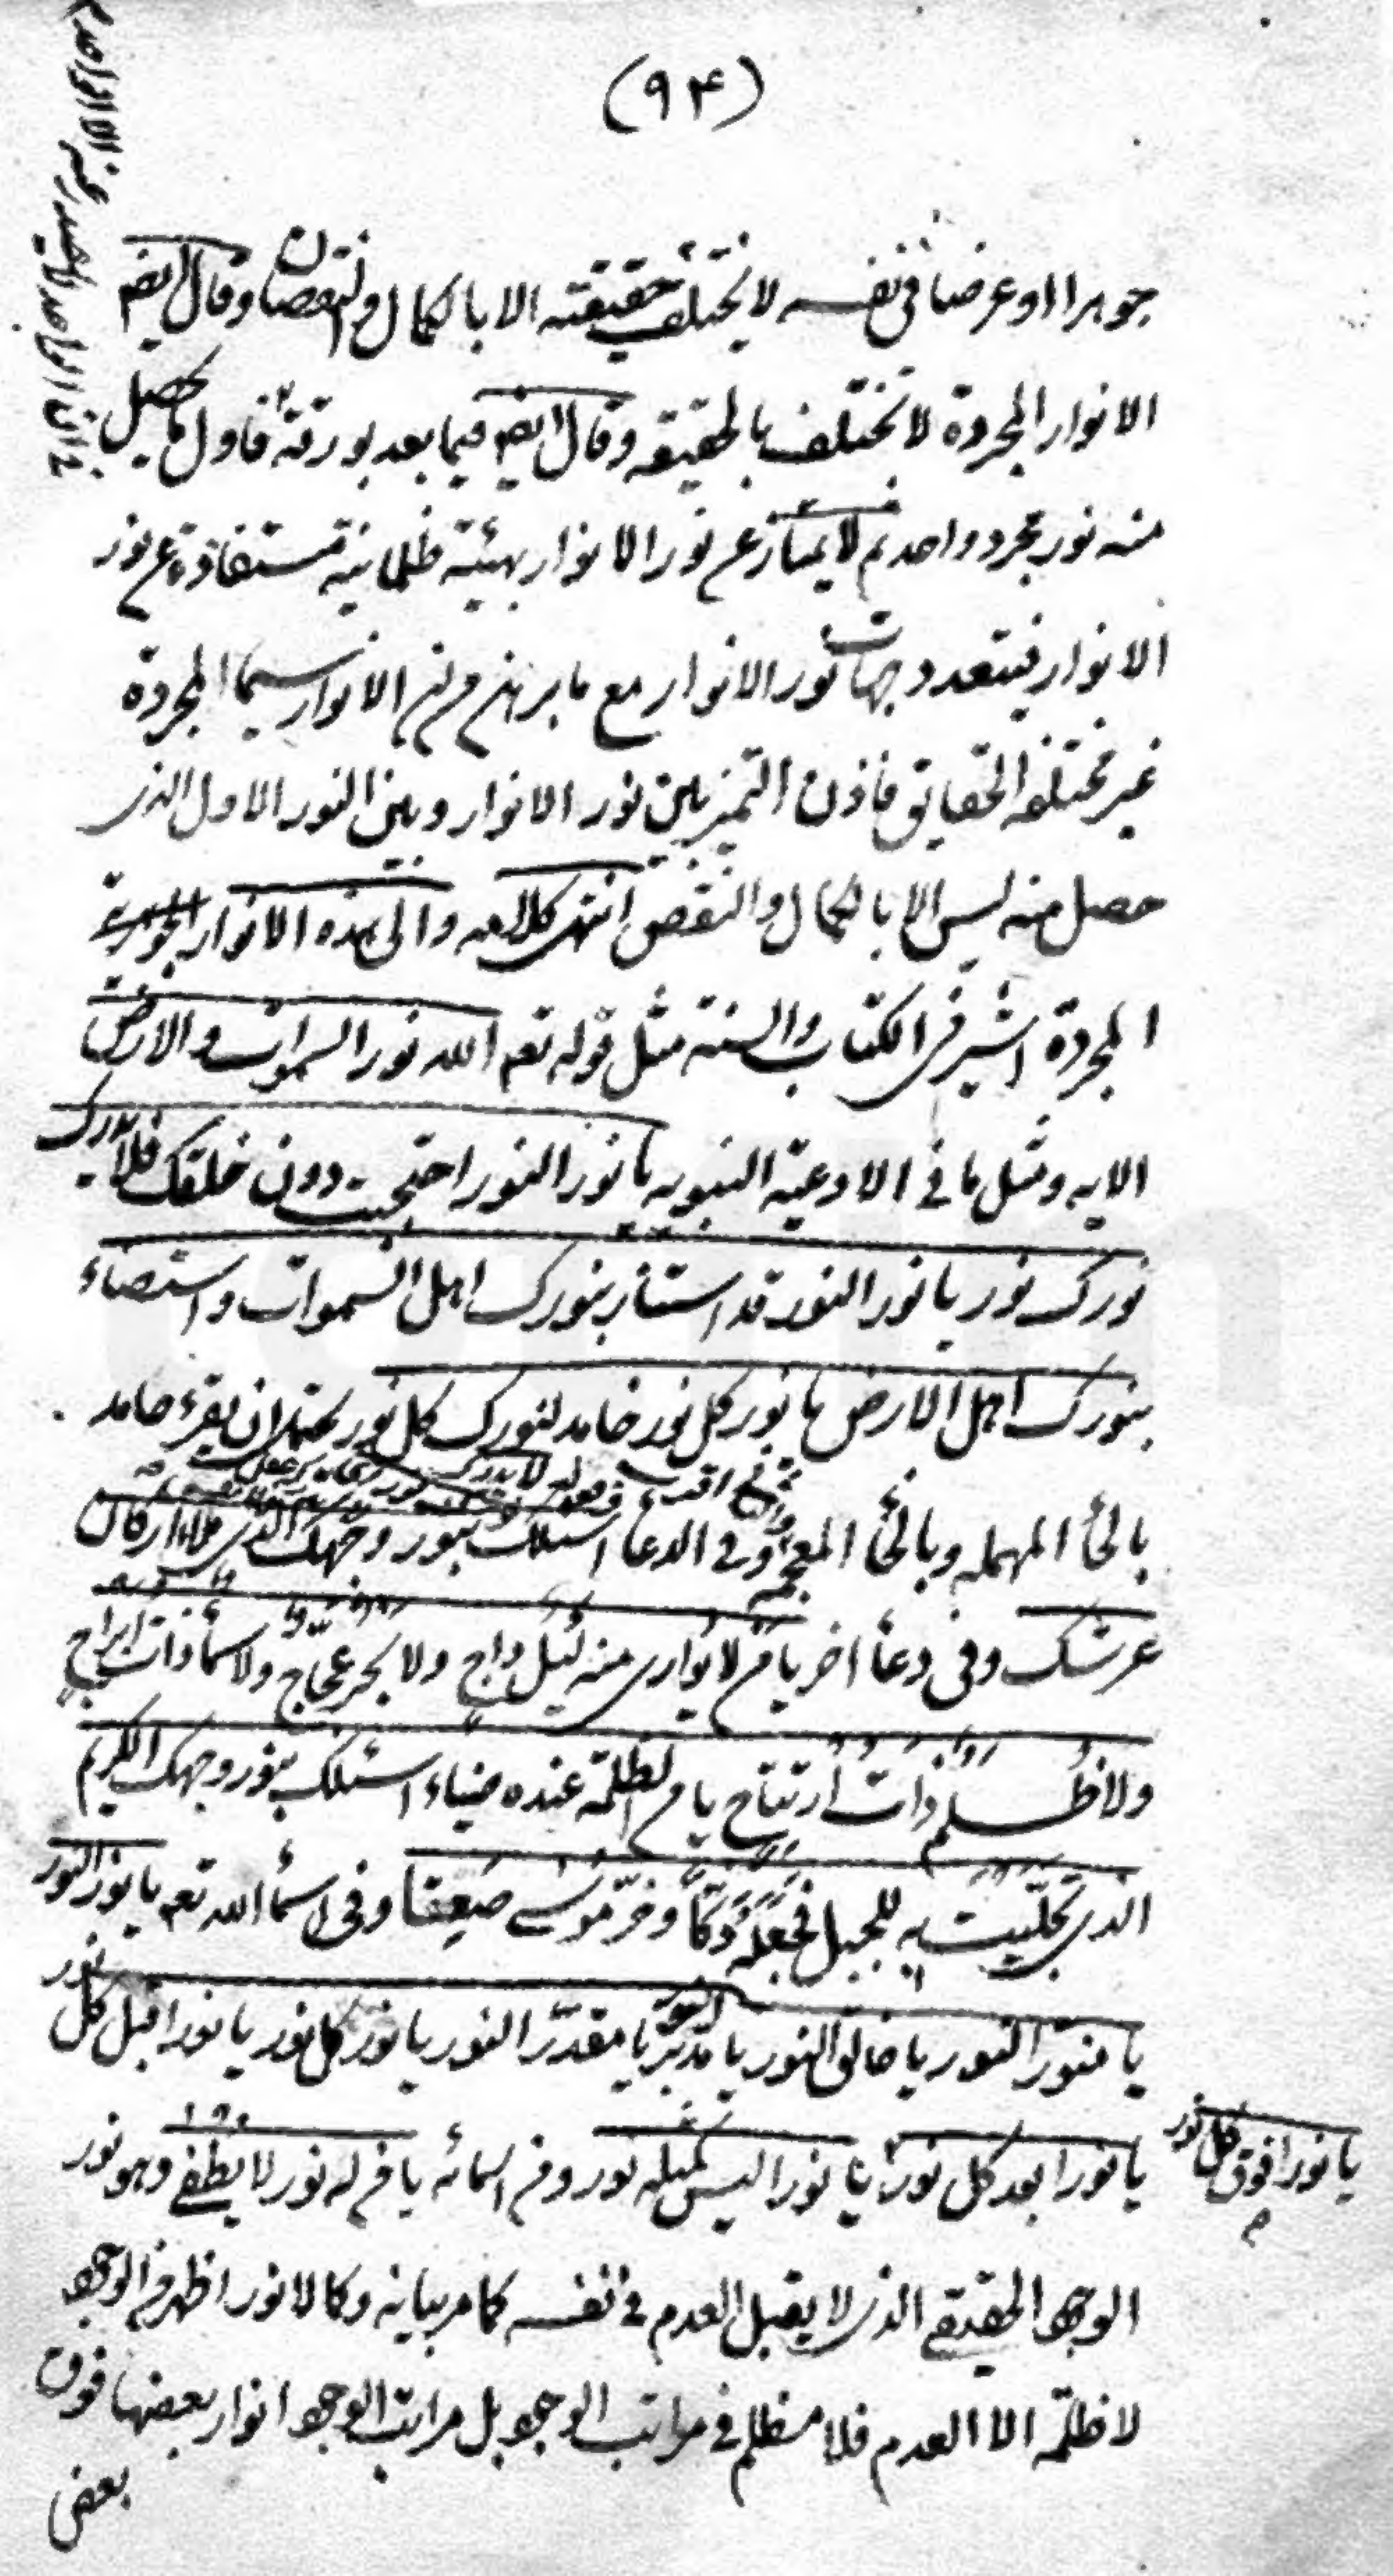 (۹۴)
جوهرا او عرضا فی نفسه لا یختلف حقیقته الا بالکمال والنقصان وقال ایضم
الانوار المجردة لا تختلف بالحقیقه وقال ایضم فیما بعد بورقة فاول ما یحصل
منه نور مجرد واحد ثم لا یمتاز عن نور الانوار بهیئة ظلمانیة مستفادة عن نور
الانوار فیتعدد جهات نور الانوار مع ما برهن من ان الانوار سیما المجردة
غیر مختلفه الحقایق فاذن التمیز بین نور الانوار وبین النور الاول الذی
حصل منه لیس الا بالکمال والنقص انتهی کلامه والی هذه الانوار الجوهریة
المجردة اشیر فی الکتاب والسنة مثل قوله تعم الله نور السموات والارض
الایه ومثل ما فی الادعیة النبویه یا نور النور احتجبت دون خلقک فلا یدرک
نورک نور یا نور النور قد استنار بنورک اهل السموات واستضاء
بنورک اهل الارض یا نور کل نور خامد لنورک کل نور یحتمل ان یقرء حامد
بالحأ المهمله وبالخأ المعجمه وفی الدعا اسئلک بنور وجهک الذی ملاء ارکان
عرشک وفی دعأ اخر یا من لا یواری منه لیل داج ولا بحر عجّاج ولا سمأ ذات ابراج
ولا ظلم ذات ارتتاج یا من الظلمة عنده ضیاء اسئلک بنور وجهک الکریم
الذی تجلّیت به للجبل فجعله دکّاً وخرّ موسی صعقا وفی اسمأ الله تعم یا نور النور
یا منوّر النور یا خالق النور یا مدبّر النور یا مقدّر النور یا نور کل نور یا نورا قبل کل نور
یا نورا بعد کل نور یا نورا فوق کل نور یا نورا لیس کمثله نور ومن اسمائه یا من له نور لا یطفی وهو نور
الوجود الحقیقی الذی لا یقبل العدم فی نفسه کما مر بیانه وکما لا نور اظهر من الوجود
لا ظلمة الا العدم فلا مظلم فی مراتب الوجود بل مراتب الوجود انوار بعضها فوق
بعض